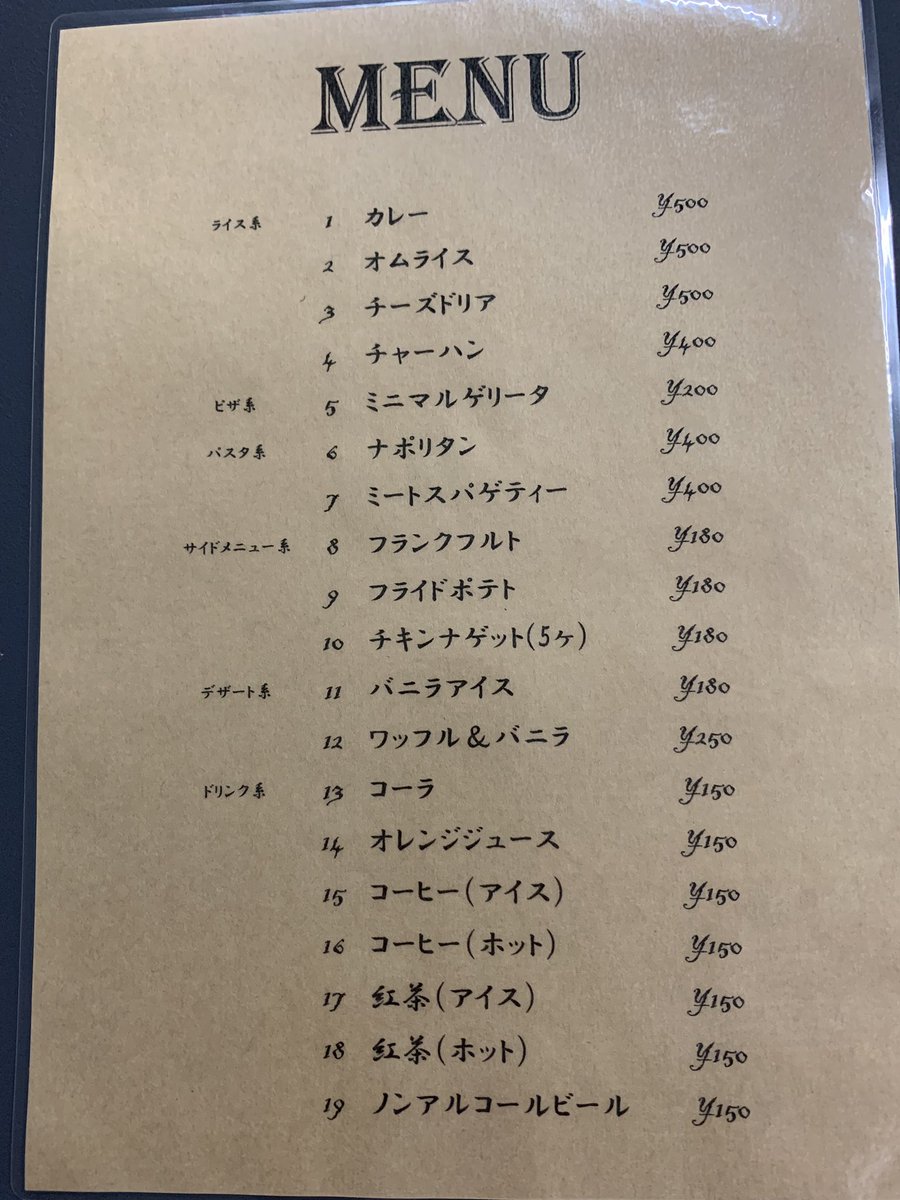 MENU
ライス系 1 カレー ¥500
2 オムライス ¥500
3 チーズドリア ¥500
4 チャーハン ¥400
ピザ系 5 ミニマルゲリータ ¥200
パスタ系 6 ナポリタン ¥400
7 ミートスパゲティー ¥400
サイドメニュー系 8 フランクフルト ¥180
9 フライドポテト ¥180
10 チキンナゲット(5ヶ) ¥180
デザート系 11 バニラアイス ¥180
12 ワッフル&バニラ ¥250
ドリンク系 13 コーラ ¥150
14 オレンジジュース ¥150
15 コーヒー(アイス) ¥150
16 コーヒー(ホット) ¥150
17 紅茶(アイス) ¥150
18 紅茶(ホット) ¥150
19 ノンアルコールビール ¥150